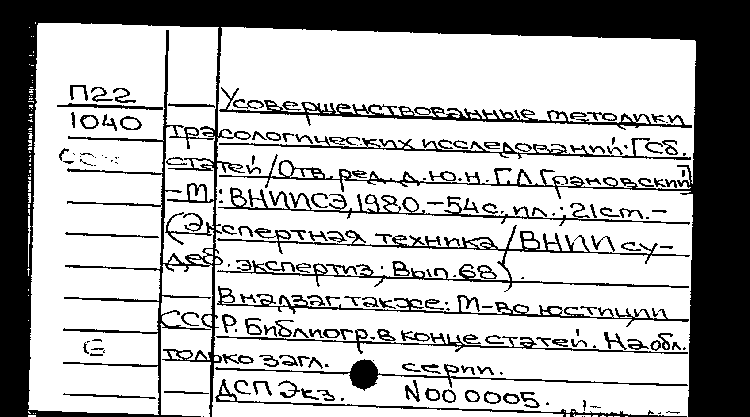 П22
1040
Усовершенствованные методики
трасологических исследований: [Сб.
статей/Отв. ред. д.ю.н. Г.Л.Грановский]
-М.: ВНИИСЭ, 1980.-54с., ил.; 21см.-
(Экспертная техника/ВНИИ су-
деб. экспертиз; Вып.68).
В надзаг. также: М-во юстиции
СССР. Библиогр. в конце статей. На обл.
только загл. серии.
Б
ДСП Экз. N000005.